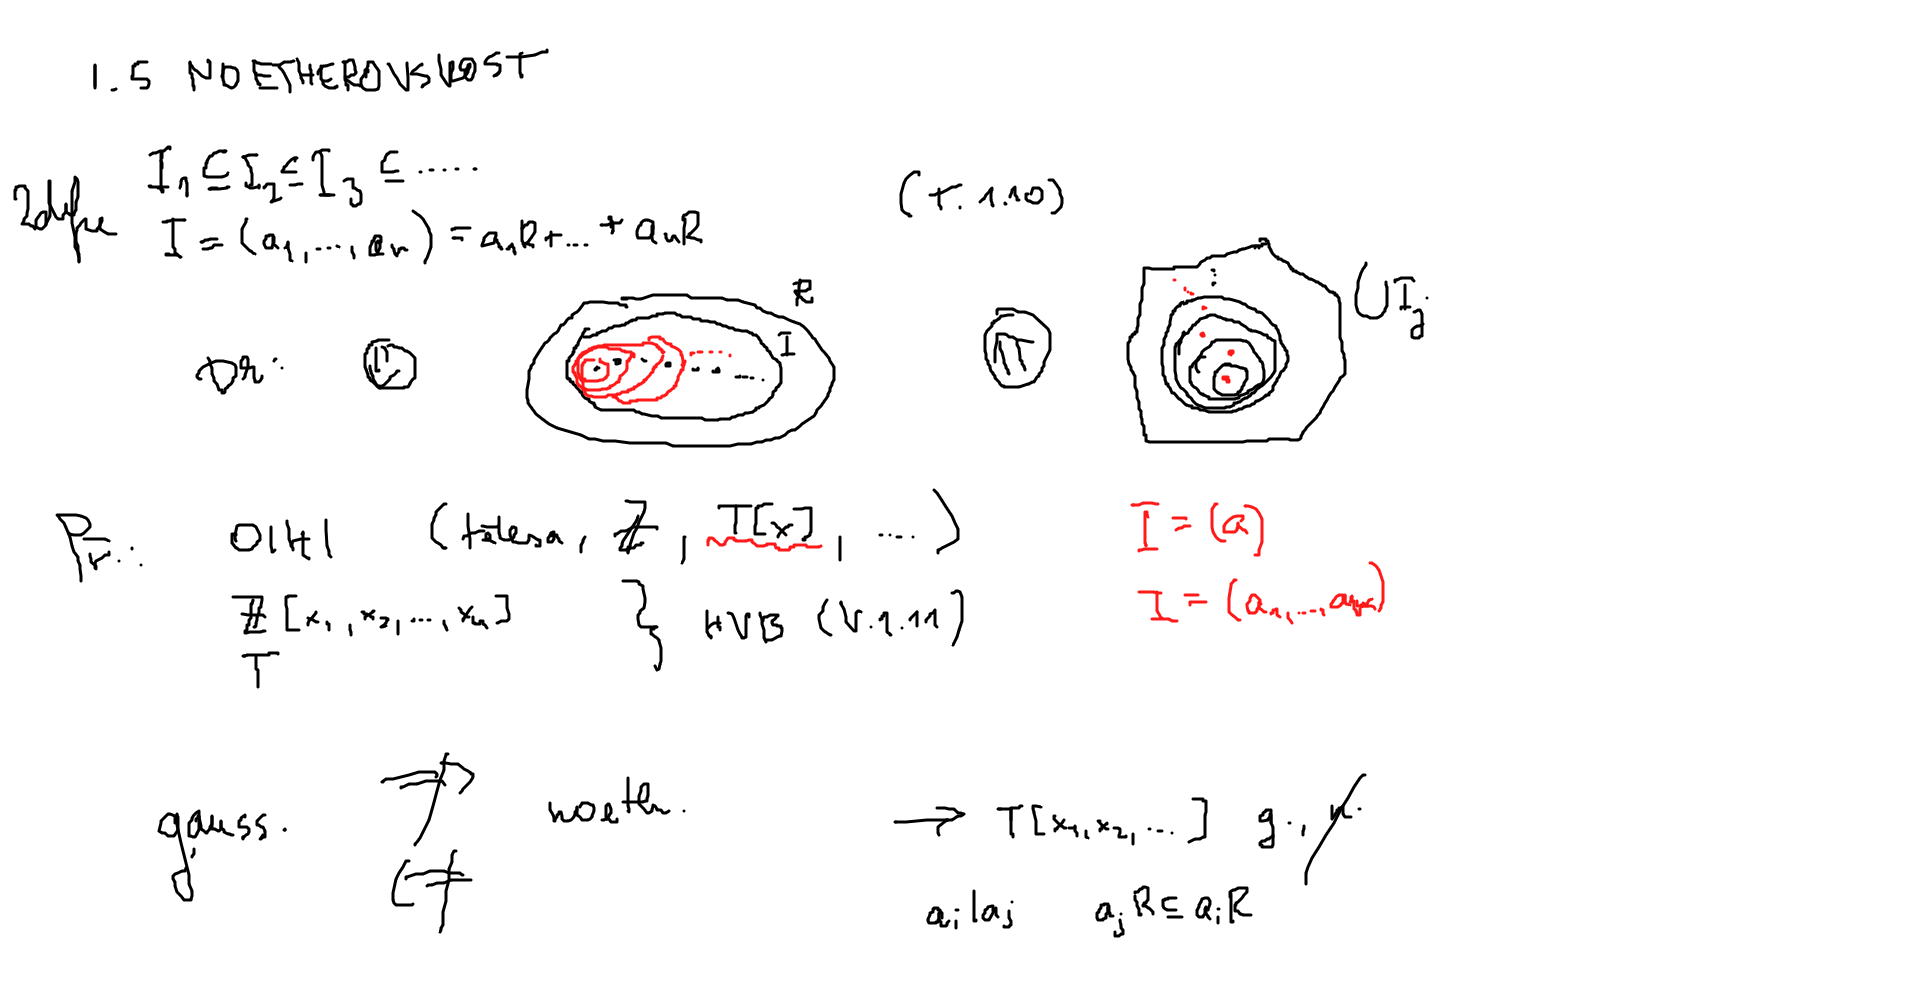 1.5 NOETHEROVSKOST
I₁ ⊆ I₂ ⊆ I₃ ⊆ .....
2 def
I = (a₁, ..., aₙ) = a₁R + ... + aₙR
(T. 1.10)
R
I
Dk:
⇓
⇑
∪I_j
Př.:
OIHI (tělesa, ℤ, T[x], ....)
I = (a)
ℤ [x₁, x₂, ..., xₙ] } HVB (V. 1.11)
I = (a₁, ..., aₙ)
T
gauss. ⇏ noeth.
⇍
→ T[x₁, x₂, ...] g., n.
aᵢ | aⱼ aⱼR ⊆ aᵢR